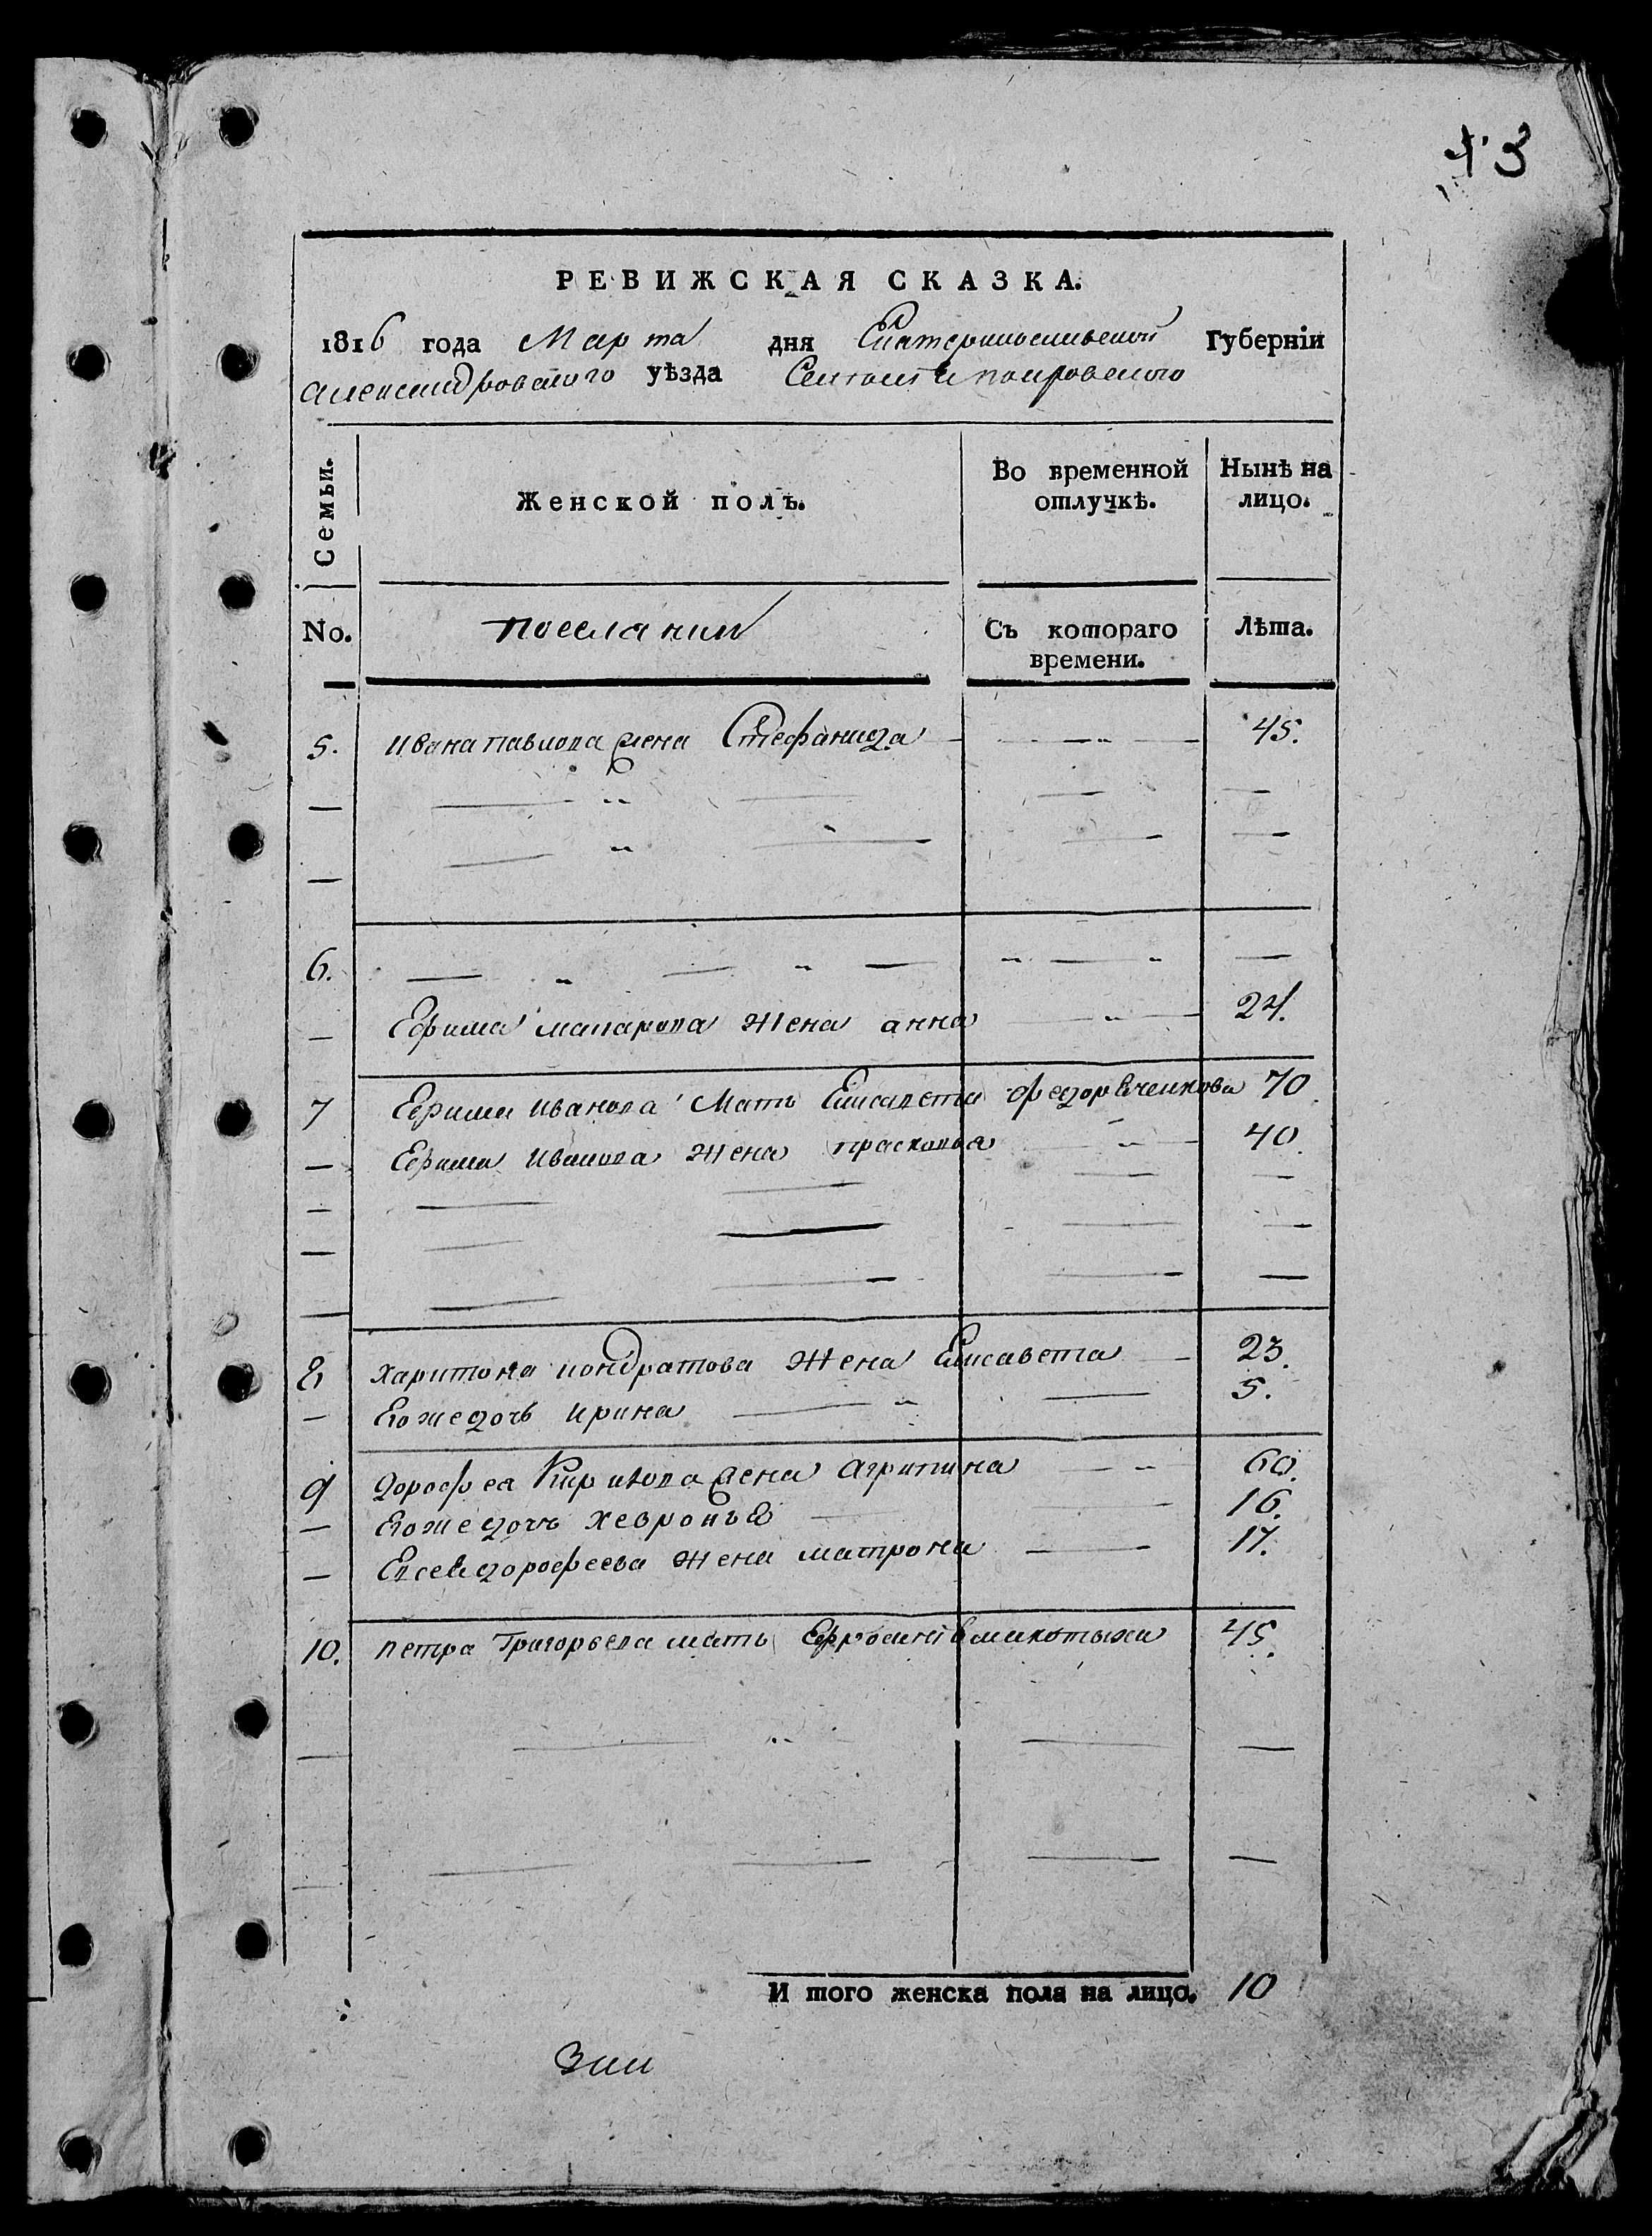 43
РЕВИЖСКАЯ СКАЗКА.
1816 года Марта дня Екатеринославской Губерніи
Александровского уѣзда Селения Покровского
Семьи.
Женской полъ.
Во временной отлучкѣ.
Нынѣ на лицо.
No.
поселянки
Съ котораго времени.
Лѣта.
5. Ивана павлова жена Стефанида 45.
6.
Ефима макарова жена анна 24.
7 Ефима иванова мать Елисавета 70.
Ефима иванова жена прасковья 40.
8 харитона кондратова жена Елисавета 23.
Его же дочь ирина 5.
9 дорофеа Кирилова жена агрипина 60.
Его же дочь хевронья 16.
дорофеева жена матрона 17.
10. петра григорьева мать 45.
И того женска пола на лицо. 10